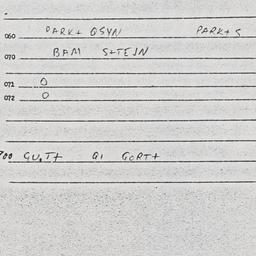 060 PARK+ QSYN PARK+ S
070 BAM S+TEIN
071 0
072 0
700 GU.T+ GI GORT+